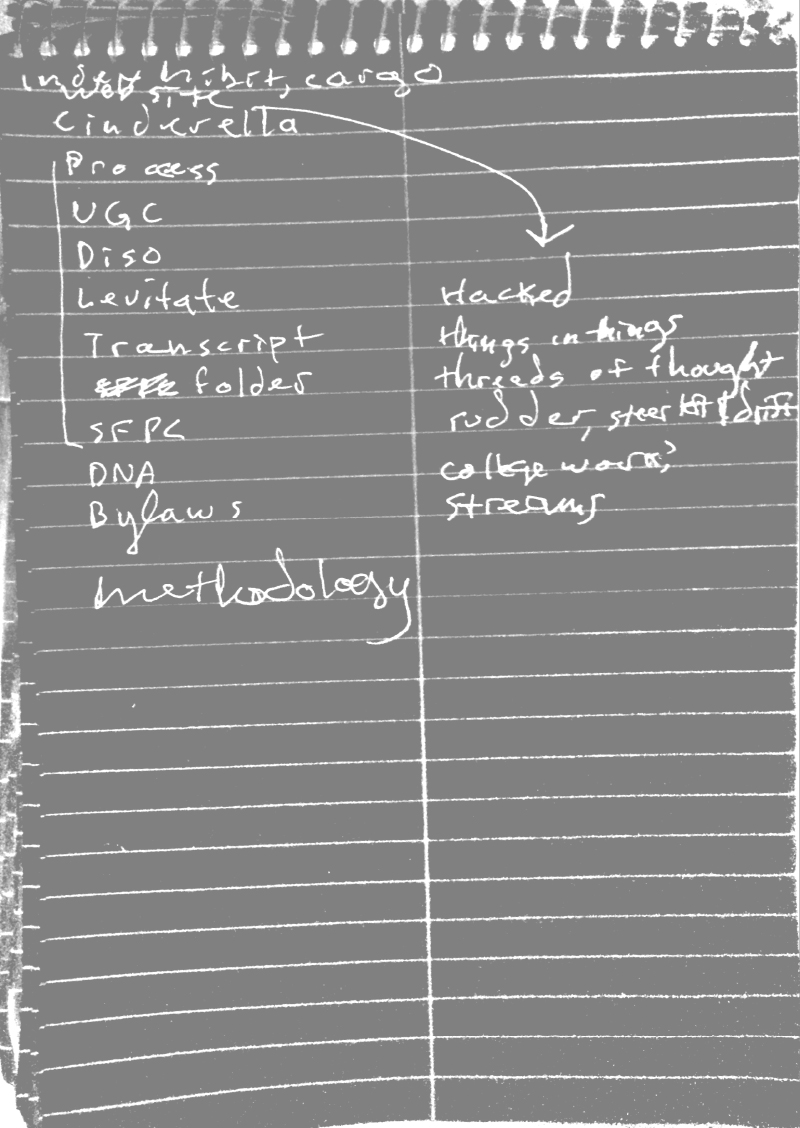 indexhibit, cargo
web site
Cinderella
Process
UGC
Diso
Levitate
Transcript
folder
SFPC
DNA
Bylaws
methodology
Hacked
things in things
threads of thought
rudder, steer
college work?
streams